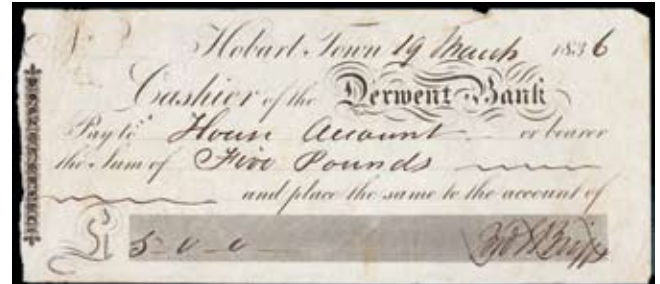 Hobart Town 19 March 1836
Cashier of the Derwent Bank
Pay to House Account or bearer
the Sum of Five Pounds
and place the same to the account of
£ 5-0-0